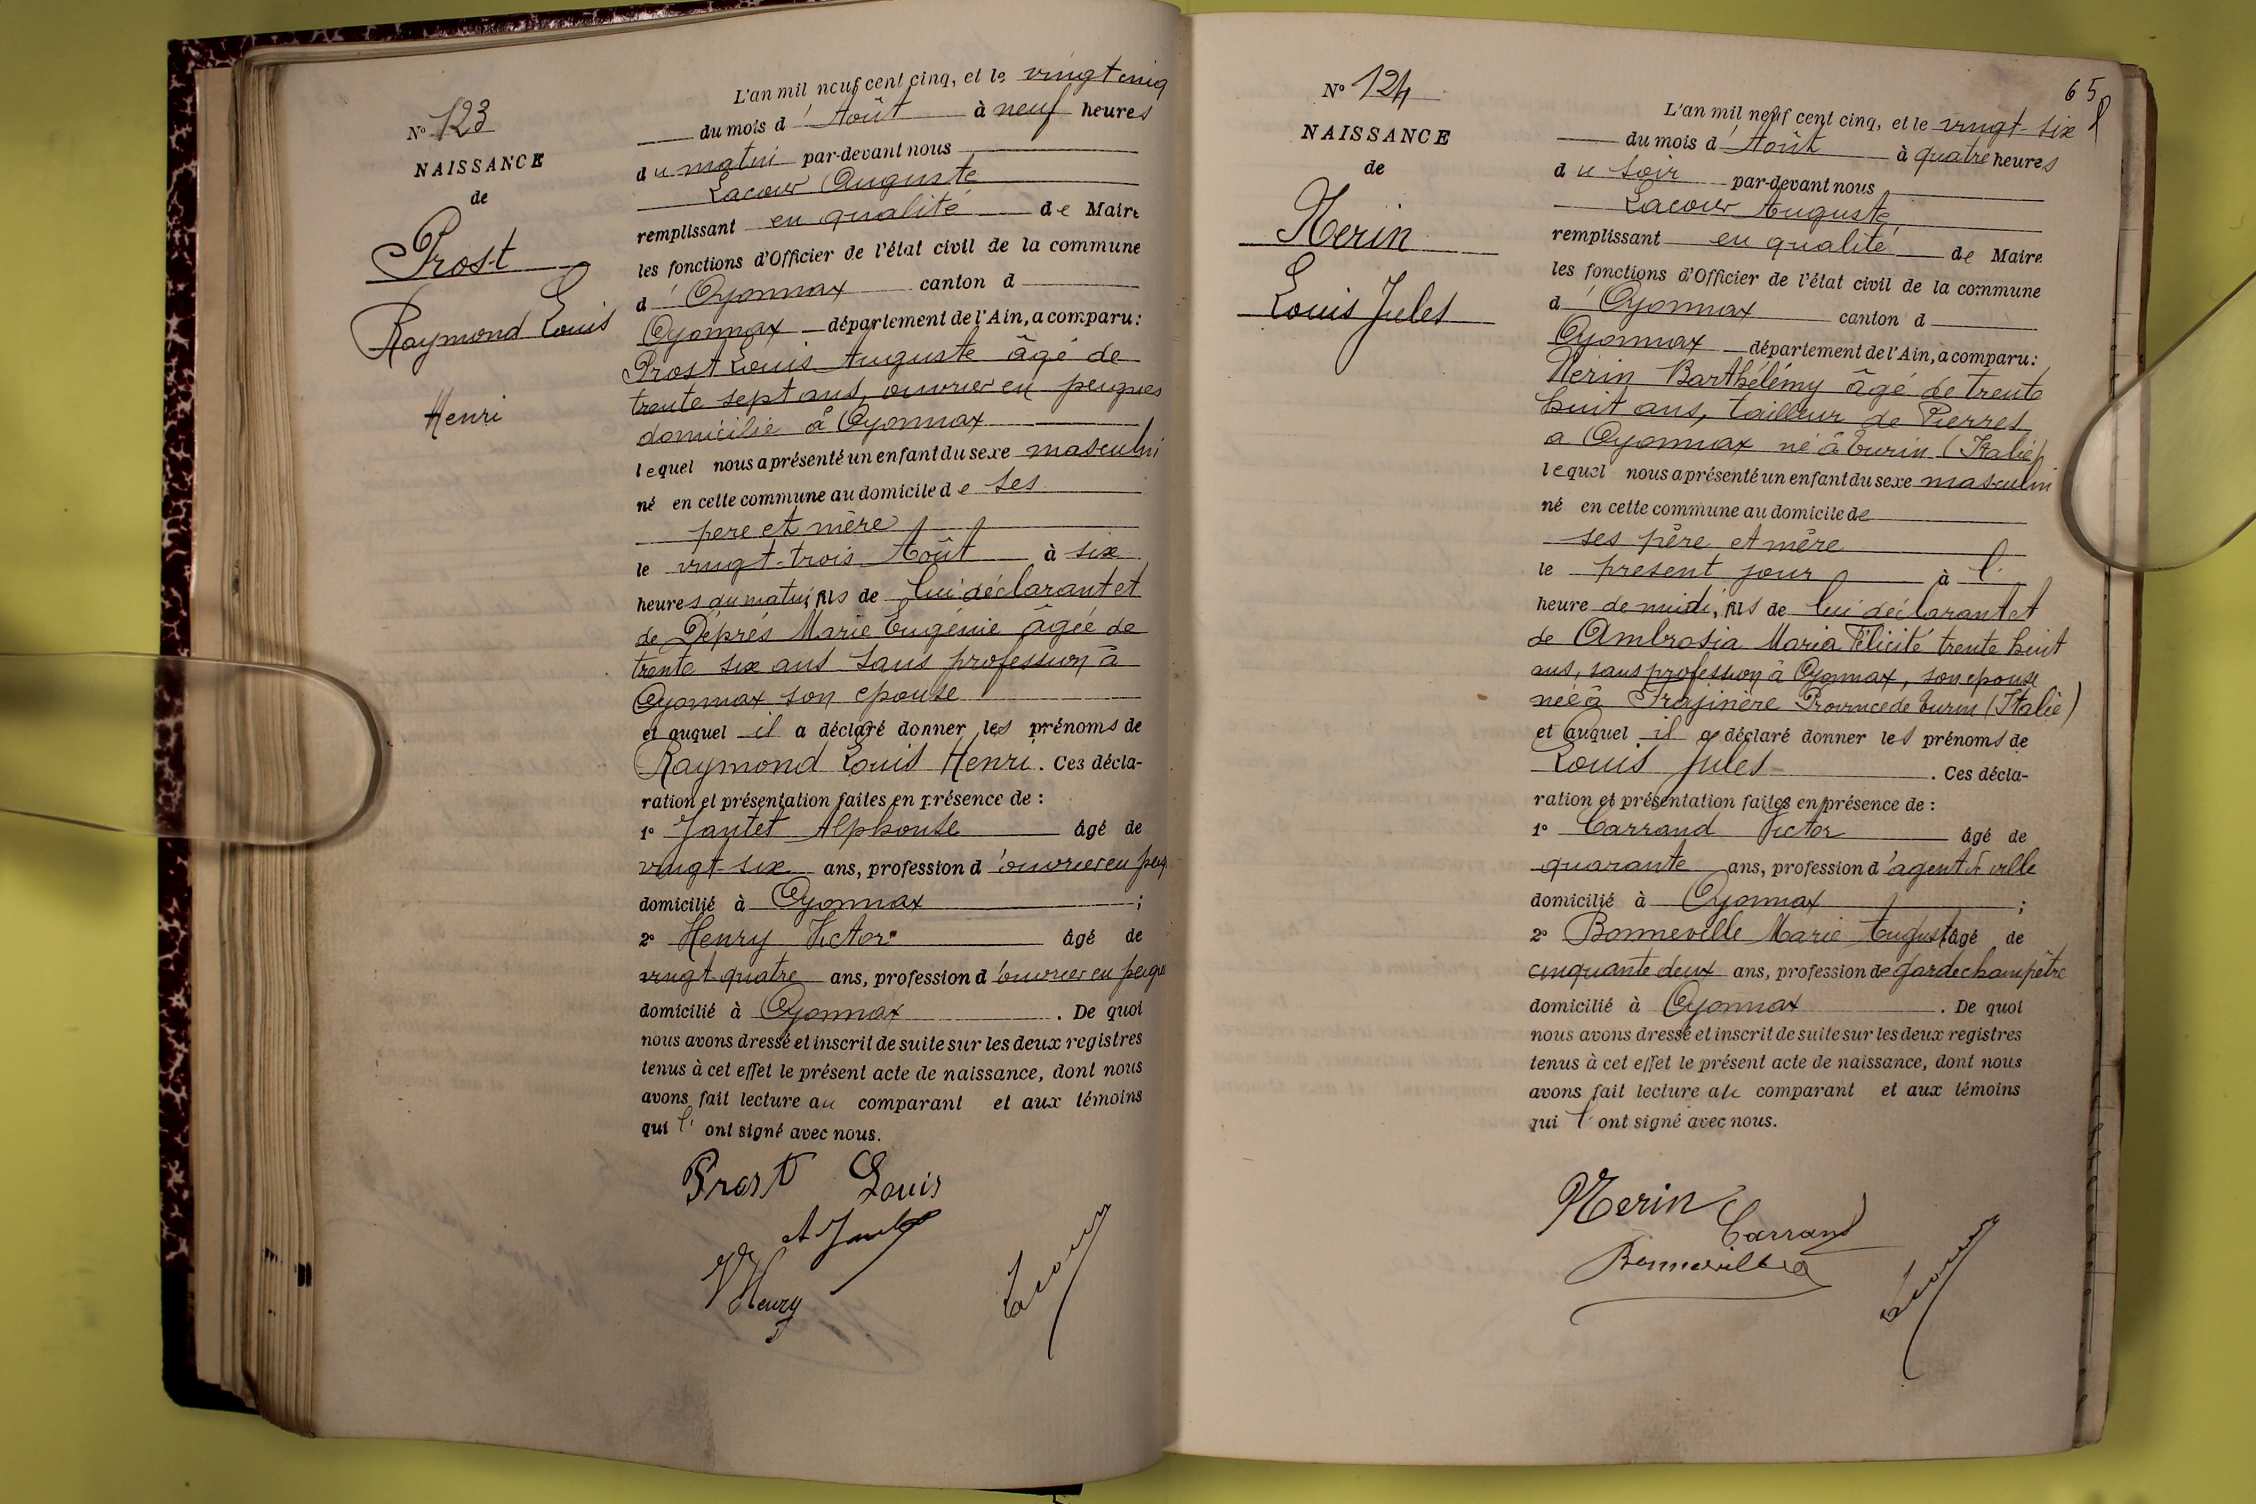 N° 123
NAISSANCE
de
Prost
Raymond Louis
Henri
L'an mil neuf cent cinq, et le vingt cinq
du mois d' Août à neuf heures
du matin par-devant nous
Lacour Auguste
remplissant en qualité de Maire
les fonctions d'Officier de l'état civil de la commune
d' Oyonnax canton d
Oyonnax département de l'Ain, a comparu:
Prost Louis Auguste âgé de
trente sept ans, ouvrier en peignes
domicilié à Oyonnax
lequel nous a présenté un enfant du sexe masculin
né en cette commune au domicile de ses
père et mère
le vingt-trois Août à six
heures du matin, fils de lui déclarant et
de Déprés Marie Eugénie âgée de
trente six ans sans profession à
Oyonnax son épouse
et auquel il a déclaré donner les prénoms de
Raymond Louis Henri. Ces décla-
ration et présentation faites en présence de:
1° Jantet Alphonse âgé de
vingt-six ans, profession d'ouvrier en peig
domicilié à Oyonnax ;
2° Henry Victor âgé de
vingt-quatre ans, profession d'ouvrier en peigne
domicilié à Oyonnax. De quoi
nous avons dressé et inscrit de suite sur les deux registres
tenus à cet effet le présent acte de naissance, dont nous
avons fait lecture au comparant et aux témoins
qui l'ont signé avec nous.
Prost Louis
A Jantet
V Henry
Lacour
65
N° 124
NAISSANCE
de
Nerin
Louis Jules
L'an mil neuf cent cinq, et le vingt-six
du mois d' Août à quatre heures
du soir par-devant nous
Lacour Auguste
remplissant en qualité de Maire
les fonctions d'Officier de l'état civil de la commune
d' Oyonnax canton d
Oyonnax département de l'Ain, a comparu:
Nerin Barthélémy âgé de trente
huit ans, tailleur de Pierres
a Oyonnax né à Turin (Italie)
lequel nous a présenté un enfant du sexe masculin
né en cette commune au domicile de
ses père et mère
le présent jour à l'
heure de midi, fils de lui déclarant et
de Ambrosia Maria Félicité trente huit
ans, sans profession à Oyonnax, son épouse
née à Frajinère Province de Turin (Italie)
et auquel il a déclaré donner les prénoms de
Louis Jules. Ces décla-
ration et présentation faites en présence de:
1° Carrand Victor âgé de
quarante ans, profession d'agent de ville
domicilié à Oyonnax ;
2° Bonneville Marie August âgé de
cinquante deux ans, profession de garde champêtre
domicilié à Oyonnax. De quoi
nous avons dressé et inscrit de suite sur les deux registres
tenus à cet effet le présent acte de naissance, dont nous
avons fait lecture au comparant et aux témoins
qui l'ont signé avec nous.
Nerin
Carrand
Bonneville
Lacour